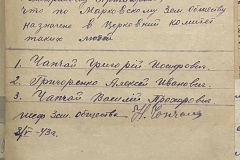 что по Марковскому Зем. обществу
назначено в Церковний комитет
таких людей
1. Чапчай Григорий Иосифович.
2. Григоренко Алексей Иванович.
3. Чапчай Василий Прохорович
шеф Зем. общества